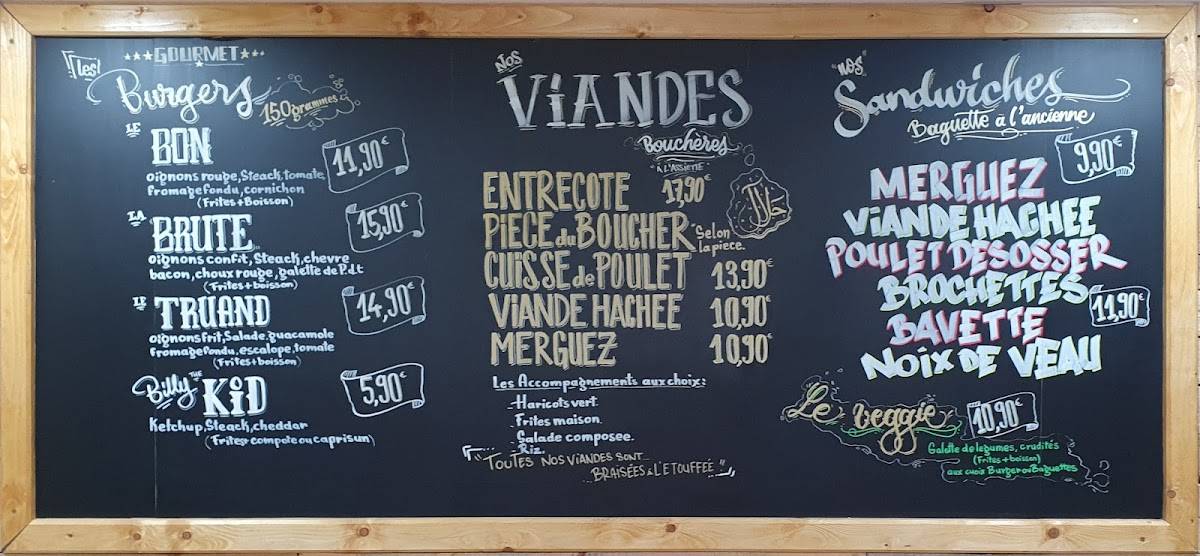 Les
GOURMET
Burgers
150grammes
LE
BON
11,90€
oignons rouge, Steack, tomate,
fromage fondu, cornichon
(Frites+Boisson)
LA
BRUTE
15,90€
oignons confit, Steack, chevre
bacon, choux rouge, galette de P.d.t
(Frites+boisson)
LE
TRUAND
14,90€
oignons frit, Salade, guacamole
fromage fondu, escalope, tomate
(Frites+boisson)
Billy THE
KiD
5,90€
Ketchup, Steack, cheddar
(Frites+ compote ou caprisun)
NOS
ViANDES
Bouchères
"À L'ASSIETTE"
ENTRECOTE 17,90€
حلال
PIECE du BOUCHER "Selon
la piece.
CUISSE de POULET 13,90€
VIANDE HACHEE 10,90€
MERGUEZ 10,90€
Les Accompagnements aux choix:
-Haricots vert.
Frites maison.
Salade composee.
-Riz.
"TOUTES NOS VIANDES SONT
BRAISÉES À L'ETOUFFÉE"
"NOS"
Sandwiches
Baguette à l'ancienne
9,90€
MERGUEZ
ViANDE HACHEE
POULET DESOSSER
BROCHETTES
11,90€
BAVETTE
NOIX DE VEAU
Le veggie 10,90€
Galette de legumes, crudités
(Frites+boisson)
aux cuoix Burger ou Baguettes